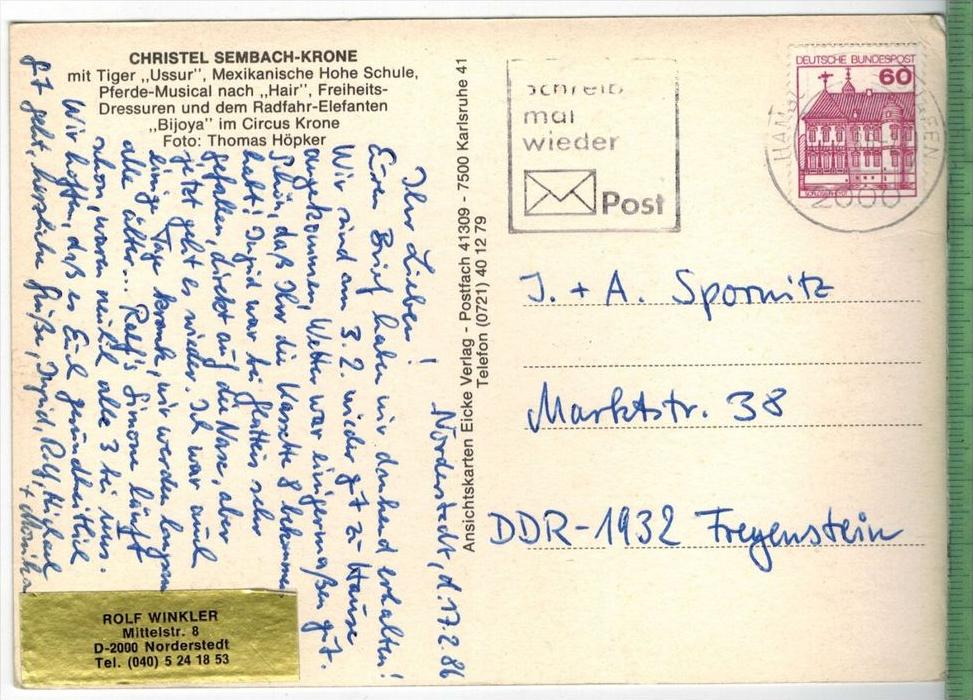 CHRISTEL SEMBACH-KRONE
mit Tiger „Ussur", Mexikanische Hohe Schule,
Pferde-Musical nach „Hair", Freiheits-
Dressuren und dem Radfahr-Elefanten
„Bijoya" im Circus Krone
Foto: Thomas Höpker
Norderstedt, d. 17.2.86
Ihr Lieben!
Euren Brief haben wir dankend erhalten!
Wir sind am 3.2. wieder gt zu Hause
angekommen, Wetter war einigermaßen gt.
Schön, daß Ihr die Kasette 8 bekommen
habt! Ingrid war bei Glatteis sehr
gefallen, direkt auf die Nase, aber
jetzt geht es wieder. Ich war auch
einige Tage krank, wir werden langsam
alle älter... Ralf's Simone läuft
schon, waren neulich alle 3 bei uns.
Wir hoffen, daß es Euch gesundheitlich
gt geht, herzliche Grüße, Ingrid, Rolf, Michael
+ Monika
ROLF WINKLER
Mittelstr. 8
D-2000 Norderstedt
Tel. (040) 5 24 18 53
Ansichtskarten Eicke Verlag - Postfach 41309 - 7500 Karlsruhe 41
Telefon (0721) 40 12 79
schreib
mal
wieder
Post
DEUTSCHE BUNDESPOST
60
2000
J. + A. Spornitz
Marktstr. 38
DDR-1932 Freyenstein